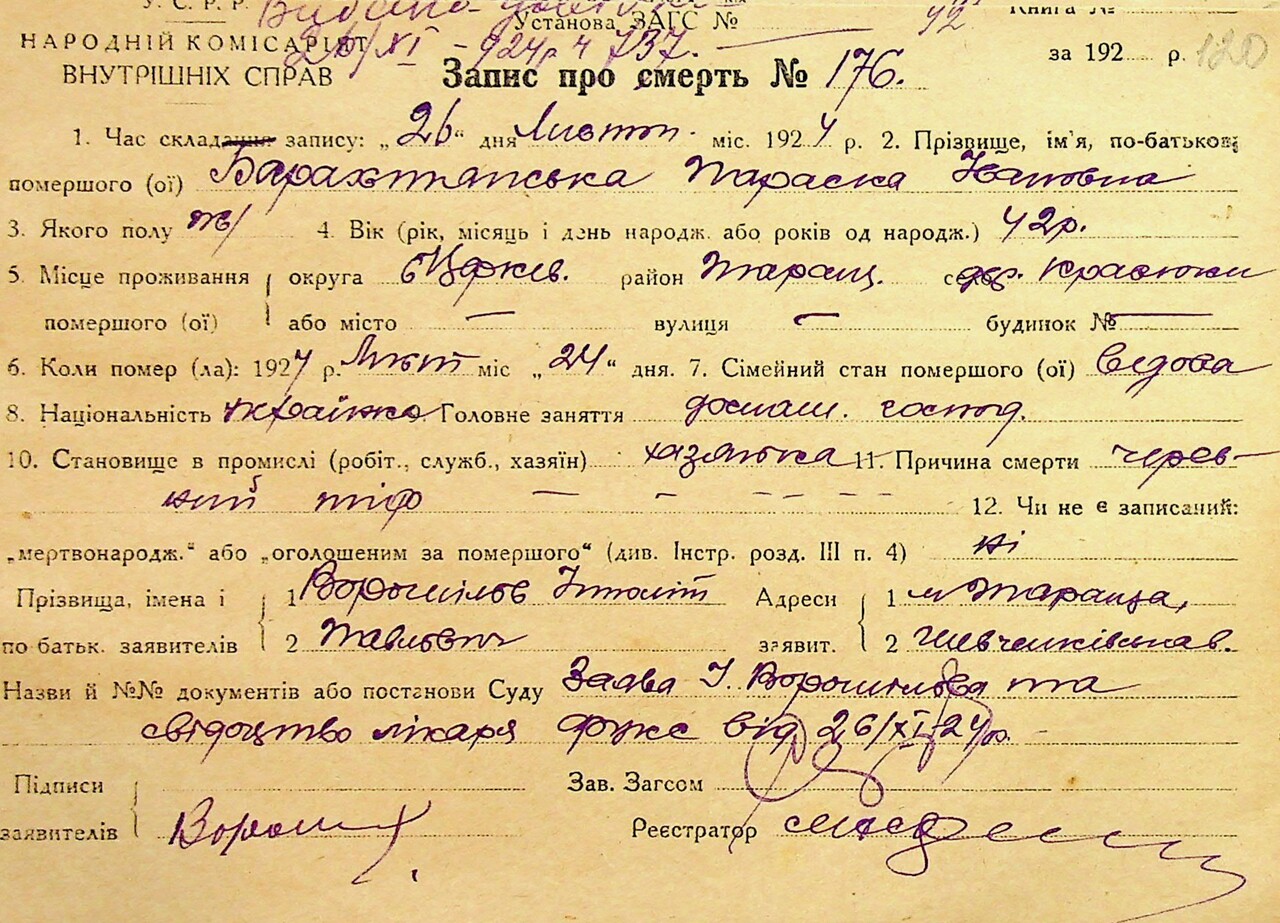 У. С. Р. Р. Видано
Установа ЗАГС № 42 Книга №
НАРОДНІЙ КОМІСАРІЯТ 26/XI – 924р ч 737.
ВНУТРІШНІХ СПРАВ Запис про смерть № 176. за 192 р. 120
1. Час складання запису: „26“ дня Листоп. міс. 1924 р. 2. Прізвище, ім'я, по-батькові
помершого (ої)
3. Якого полу ж/ 4. Вік (рік, місяць і день народж. або років од народж.) 42р.
5. Місце проживання округа БЦерків. район Таращ. село дер. Красюки
помершого (ої) або місто — вулиця — будинок № —
6. Коли помер (ла): 1924 р. Лист міс „24“ дня. 7. Сімейний стан помершого (ої) вдова
8. Національність українка 9. Головне заняття домаш. господ.
10. Становище в промислі (робіт., служб., хазяїн) хазяйка 11. Причина смерти черев-
ний тіф — — — — — 12. Чи не є записаний:
„мертвонародж.“ або „оголошеним за помершого“ (див. Інстр. розд. III п. 4) ні
Прізвища, імена і 1 Ворошілов Іполіт Адреси 1 м Тараща,
по батьк. заявителів 2 Павлович заявит. 2 Шевченківська в.
Назви й №№ документів або постанови Суду Заява І. Ворошілова та
свідоцтво лікаря Фукс від 26/XI 24р.
Підписи Зав. Загсом
заявителів Реєстратор